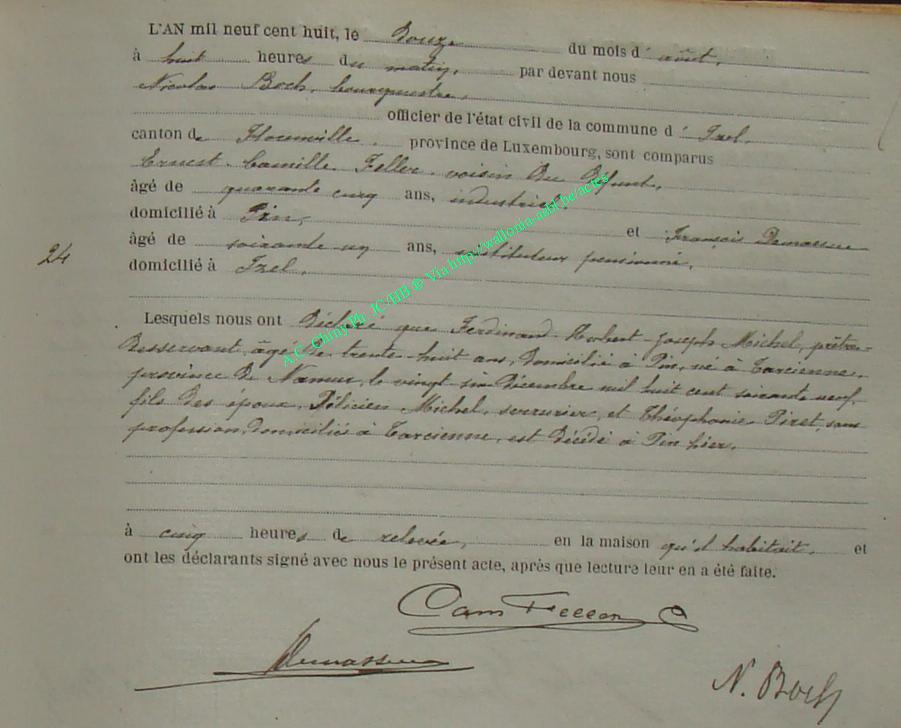 L'AN mil neuf cent huit, le Douze du mois d'août,
à huit heures du matin, par devant nous
Nicolas Boch, bourgmestre,
officier de l'état civil de la commune d'Izel,
canton de Florenville, province de Luxembourg, sont comparus
Ernest Camille Feller, voisin du défunt,
âgé de quarante cinq ans, industriel,
domicilié à Pin, et François Demasseu
âgé de soixante un ans, instituteur pensionné,
24
domicilié à Izel,
Lesquels nous ont Déclaré que Ferdinand Hubert Joseph Michel, prêtre-
Desservant, âgé de trente-huit ans, domicilié à Pin, né à Tarcienne,
province de Namur, le vingt six Décembre mil huit cent soixante neuf,
fils des époux, Félicien Michel, serrurier, et Théophanie Piret, sans
profession, domiciliés à Tarcienne, est Décédé à Pin hier,
à cinq heures de relevée, en la maison qu'il habitait, et
ont les déclarants signé avec nous le présent acte, après que lecture leur en a été faite.
Cam Feller
N. Boch
A.C. Chiny Ph. JC HB © Via http://wallonia-asbl.be/actes